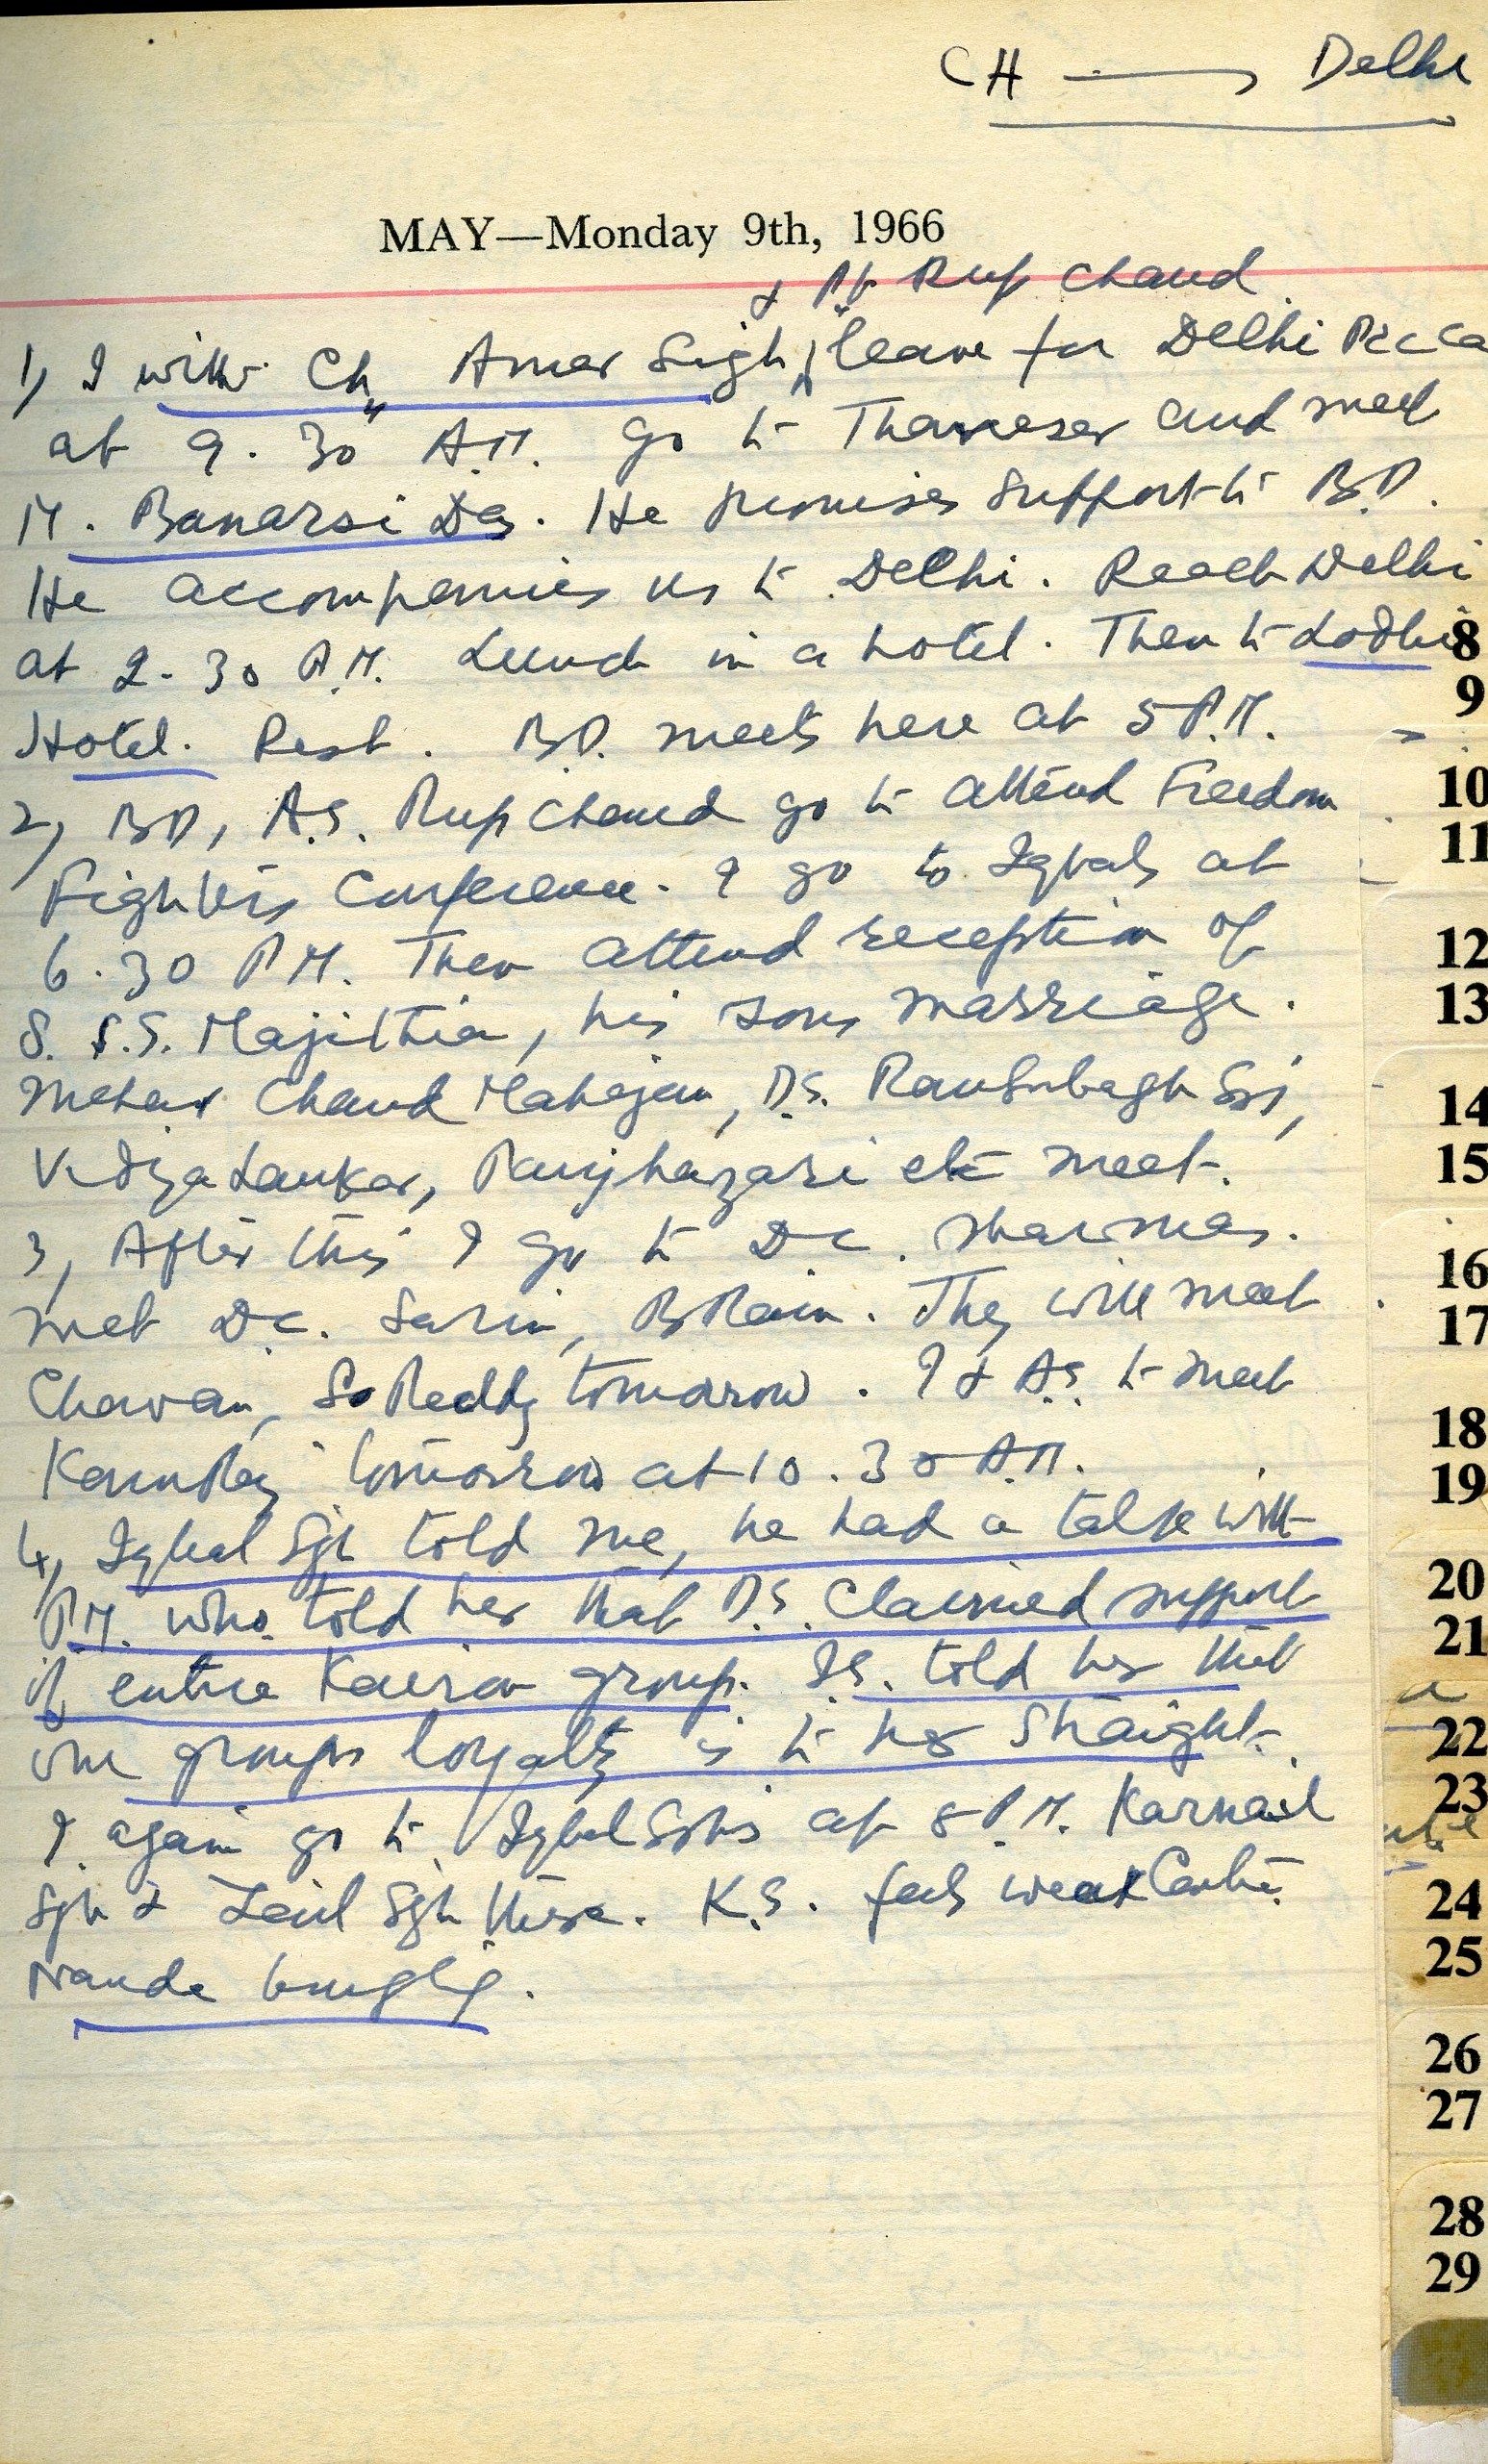 CH → Delhi
MAY—Monday 9th, 1966
& Pt Rup Chand
1) I with Ch. Amar Singh leave for Delhi
at 9.30 A.M. go to Thaneser and meet
M. Banarsi Das. He promises support to B.D.
He accompanies us to Delhi. Reach Delhi
at 2.30 P.M. Lunch in a hotel. Then to Lodhi
Hotel. Rest. B.D. meets here at 5 P.M.
2) BD, A.S. Rup Chand go to attend Freedom
Fighters Conference. I go to Iqbals at
6.30 P.M. Then attend reception of
S. S.S. Majithia, his sons marriage.
Mehar Chand Mahajan, D.S.
Vidya Lankar, Panjhazari etc meet.
3, After this I go to D.C. Sharmas.
met D.C. Sarin, They will meet
Chavan, Reddy tomorrow. I & A.S. to meet
tomorrow at 10.30 A.M.
4, Iqbal Sgh told me, he had a talk with
P.M. who told her that D.S. claimed support
of entire Kairon group. I.S. told her that
our groups loyalty is to her straight.
I again go to Iqbal Sghs at 8 P.M. Karnail
Sgh & Zail Sgh there. K.S. feels weak Centre
Nanda
8
9
10
11
12
13
14
15
16
17
18
19
20
21
22
23
24
25
26
27
28
29